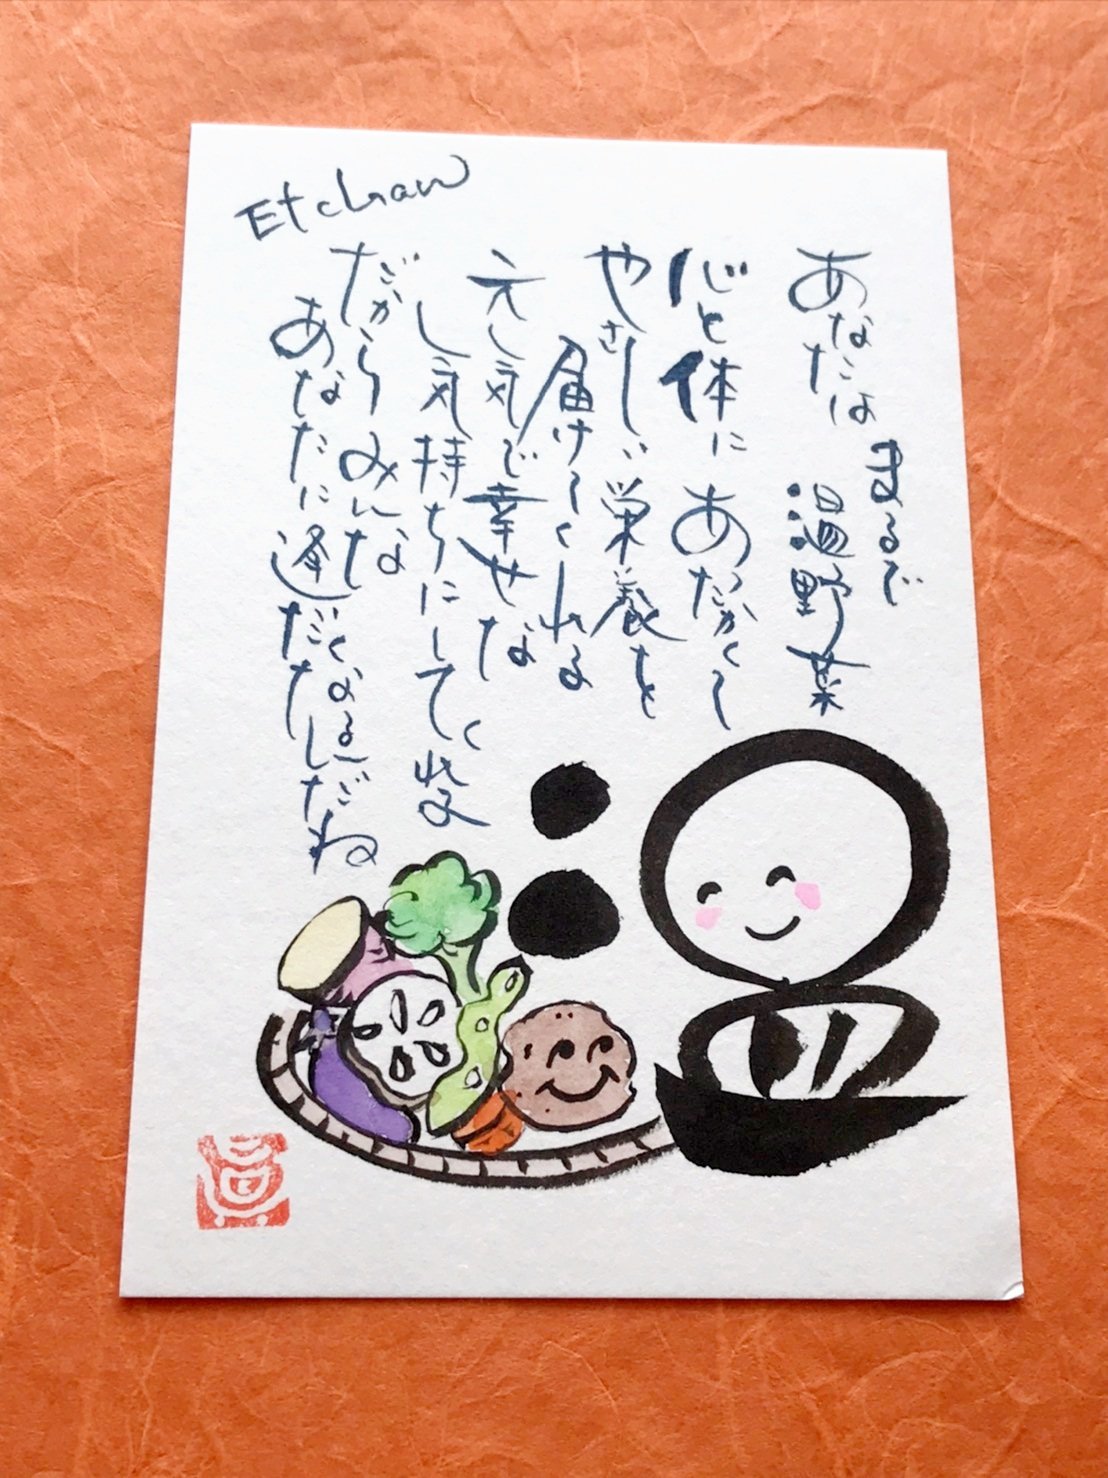 Etchan
あなたは
まるで
温野菜
心と体に あったかくて
やさしい栄養を
届けてくれる
元気で幸せな
気持ちにしてくれる
だからみんな
あなたに逢
温